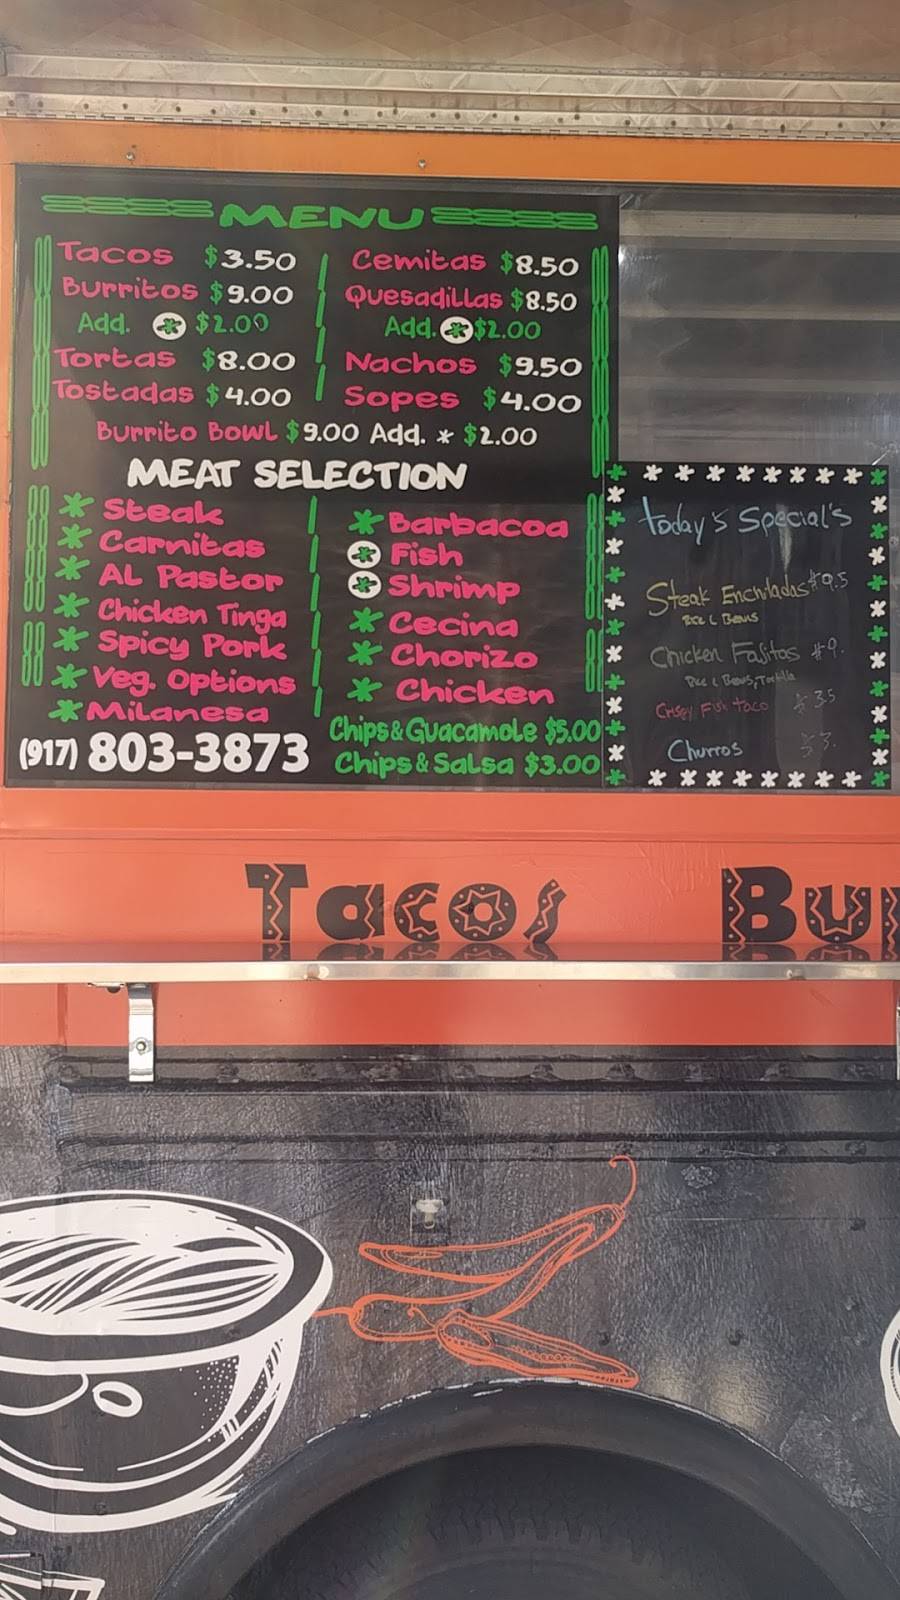 MENU
Tacos $3.50
Burritos $9.00
Add. * $2.00
Tortas $8.00
Tostadas $4.00
Cemitas $8.50
Quesadillas $8.50
Add. * $2.00
Nachos $9.50
Sopes $4.00
Burrito Bowl $9.00 Add. * $2.00
MEAT SELECTION
* Steak
* Carnitas
* AL Pastor
* Chicken Tinga
* Spicy Pork
* Veg. Options
* Milanesa
* Barbacoa
* Fish
* Shrimp
* Cecina
* Chorizo
* Chicken
(917) 803-3873
Chips & Guacamole $5.00
Chips & Salsa $3.00
Today's Special's
Steak Enchiladas $9.5
Rice & Beans
Chicken Fajitas $9.
Rice & Beans, Tortilla
Crispy Fish taco $3.5
Churros $3.
Tacos Bur